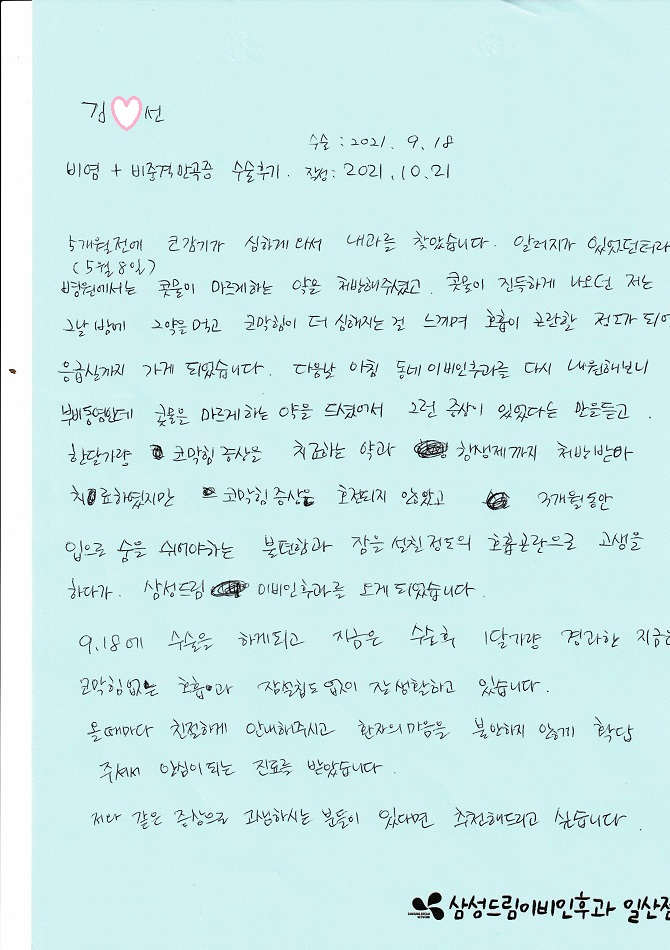 김 선
수술 : 2021. 9. 18
비염 + 비중격만곡증 수술후기. 작성: 2021. 10. 21
5개월전에 코감기가 심하게 와서 내과를 찾았습니다. 알러지가 있었던터라
(5월8일)
병원에서는 콧물이 마르게하는 약을 처방해주셨고. 콧물이 진득하게 나오던 저는
그날 밤에 그약을 먹고 코막힘이 더 심해지는 걸 느끼며 호흡이 곤란한 정도가 되어
응급실까지 가게 되었습니다. 다음날 아침 동네이비인후과를 다시 내원해보니
부비동염인데 콧물을 마르게하는 약을 드셨어서 그런 증상이 있었다는 말을듣고.
한달가량 코막힘증상을 치료하는 약과 항생제까지 처방받아
치료하였지만 코막힘증상은 호전되지 않았고 3개월동안
입으로 숨을 쉬어야하는 불편함과 잠을 설친정도의 호흡곤란으로 고생을
하다가. 삼성드림 이비인후과를 오게되었습니다.
9.18에 수술을 하게되고 지금은 수술후 1달가량 경과한 지금은
코막힘없는 호흡과 잠설침도 없이 잘생활하고 있습니다.
올때마다 친절하게 안내해주시고 환자의마음을 불안하지 않게 확답
주셔서 안심이되는 진료를 받았습니다.
저와 같은 증상으로 고생하시는 분들이 있다면 추천해드리고 싶습니다.
삼성드림이비인후과 일산점